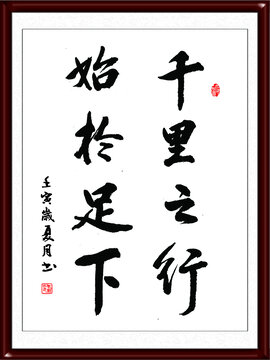 千里之行
始於足下
壬寅歲夏月书